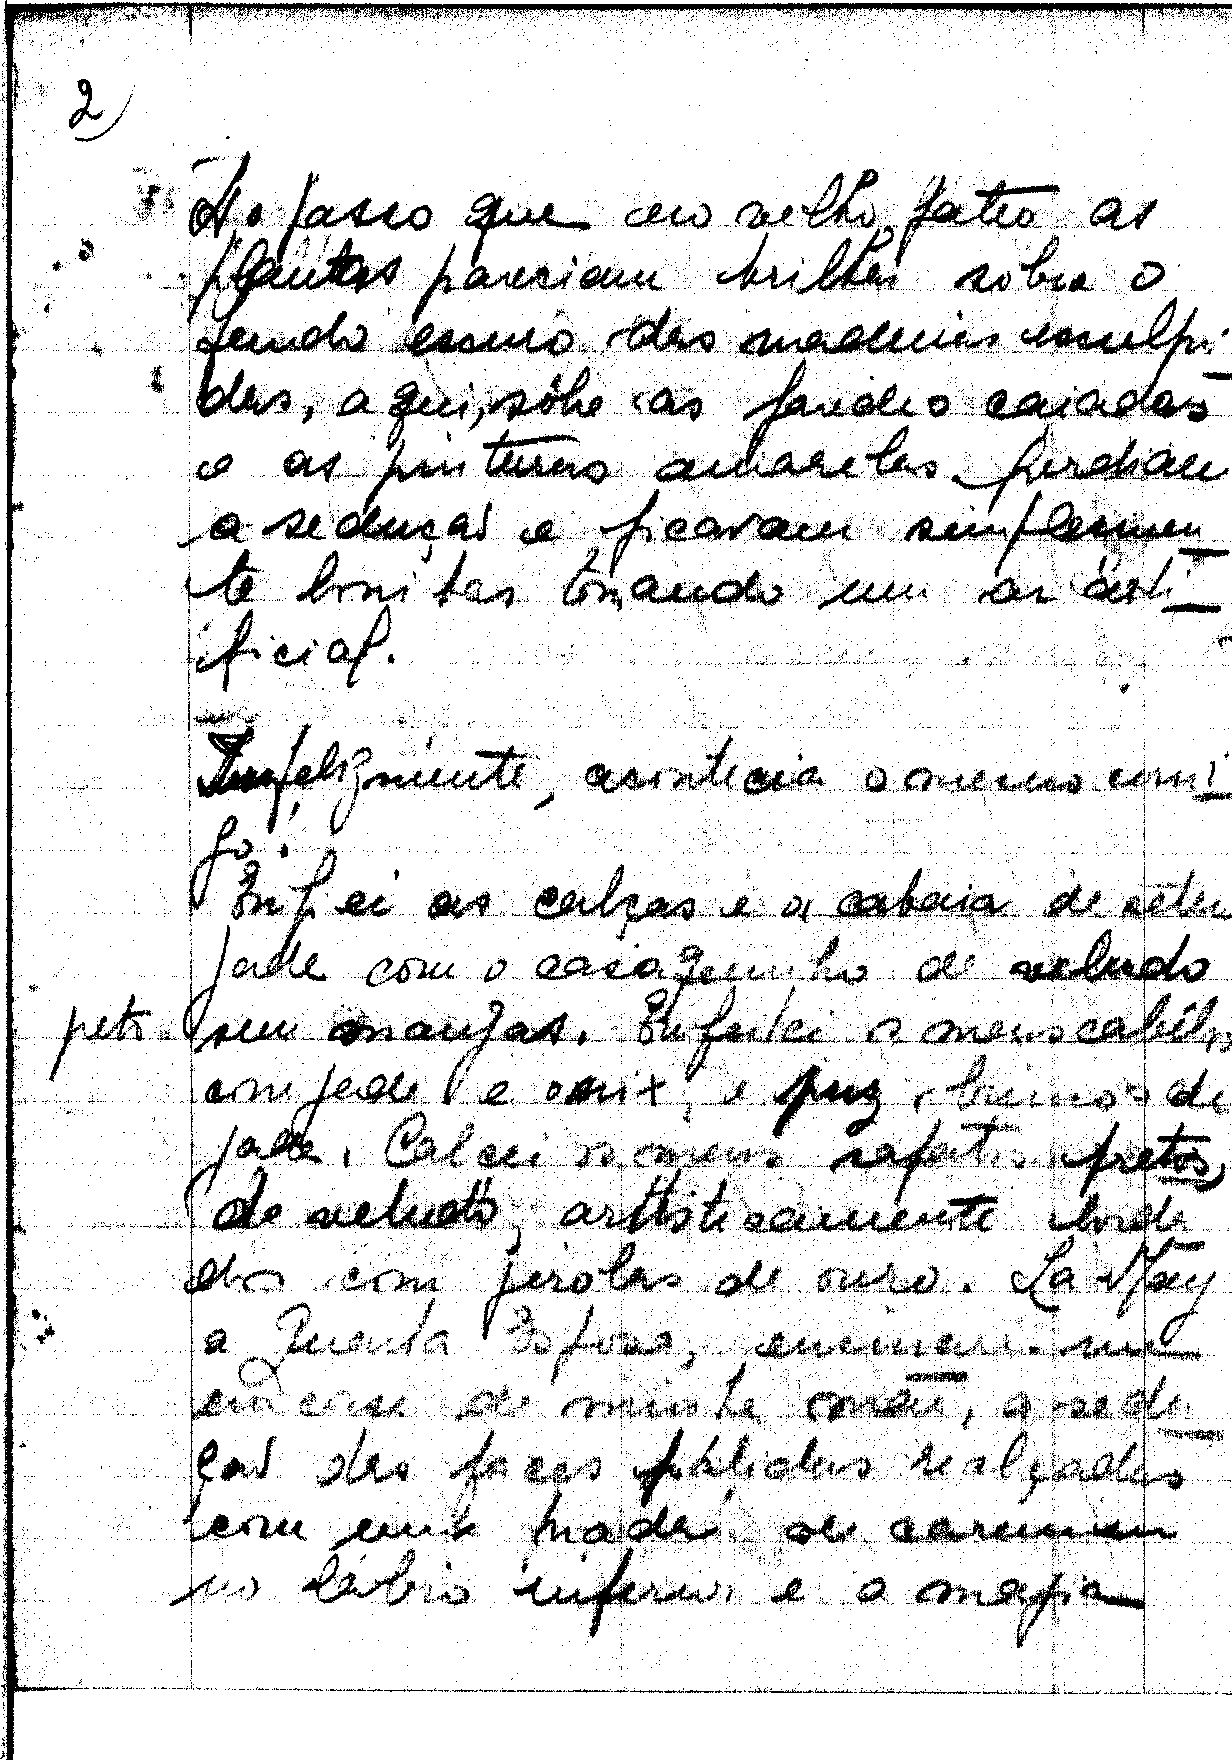 2)
Ao passo que no velho pateo as
plantas pareciam brilhar sobre o
fundo escuro das madeiras esculpi-
das, aqui, sôbre as paredes caiadas
e as pinturas amarelas perdiam
a seduçaõ e ficavam simplesmen-
te bonitas tomando um ar arti-
ficial.
Infelizmente, acontecia o mesmo comi-
go!
Enfiei as calças e a cabaia de setim
jade com o casaquinho de veludo
preto sem mangas. Enfeitei os meus cabêlos
com jade e onix, e puz brincos de
jade. Calcei os meus sapatos pretos,
de veludo, artisticamente borda
dos com perolas de ouro. La-May
a Quarta Esposa, ensinara-me
em casa de minha mãe, a sedu-
çaõ das faces pálidas realçadas
com uma de carmim
no lábio inferior e a magia